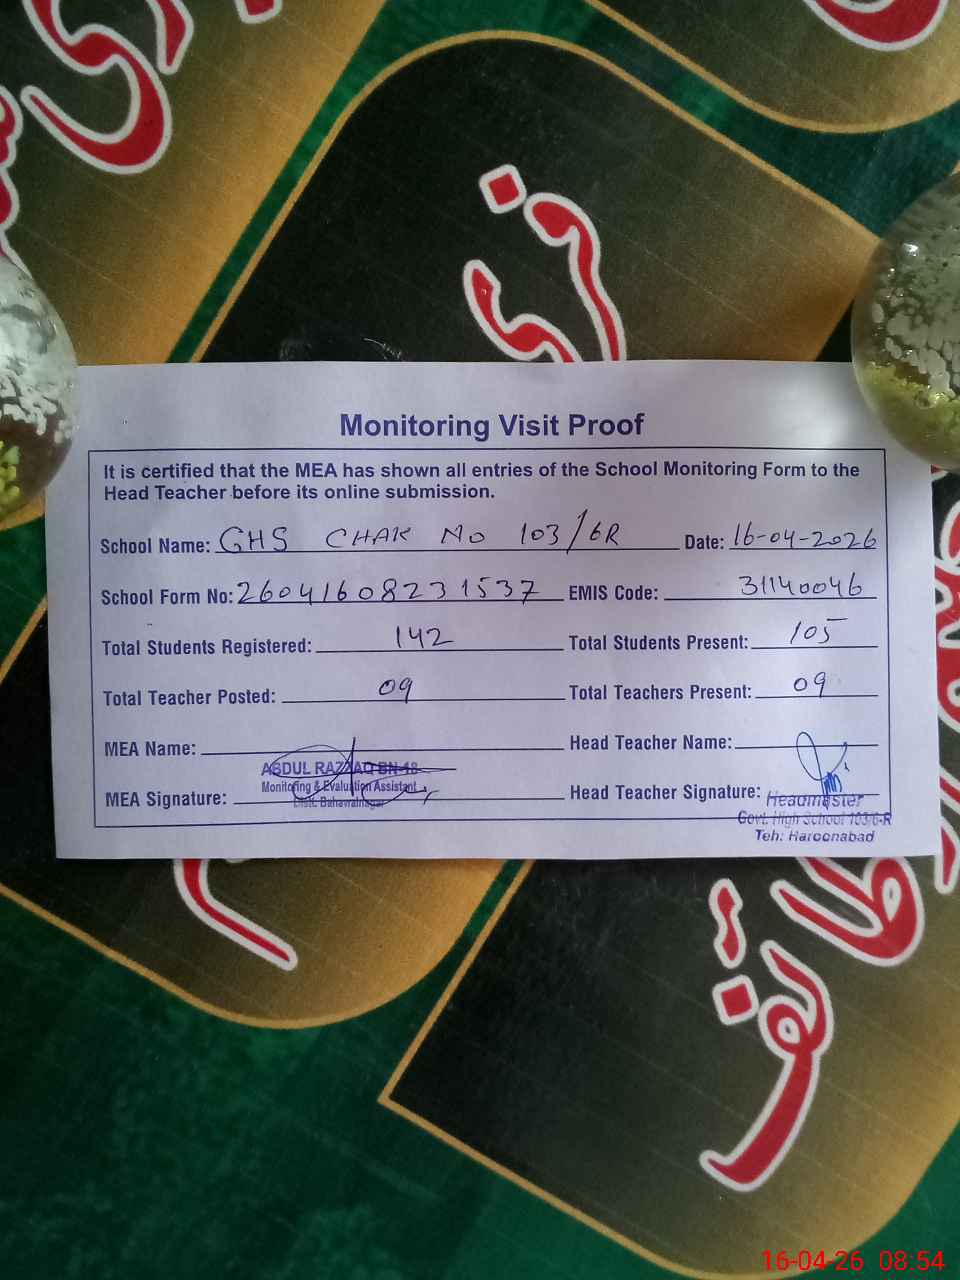 قی
Monitoring Visit Proof
It is certified that the MEA has shown all entries of the School Monitoring Form to the
Head Teacher before its online submission.
School Name: GHS CHAK NO 103/6R Date: 16-04-2026
School Form No: 26041608231537 EMIS Code: 31140046
Total Students Registered: 142 Total Students Present: 105
Total Teacher Posted: 09 Total Teachers Present: 09
MEA Name: Head Teacher Name:
ABDUL RAZZAQ BN-18
Monitoring & Evaluation Assistant
MEA Signature: Head Teacher Signature:
Distt. Bahawalnagar
Headmaster
Govt. High School 103/6-R
Teh: Haroonabad
16-04-26 08:54